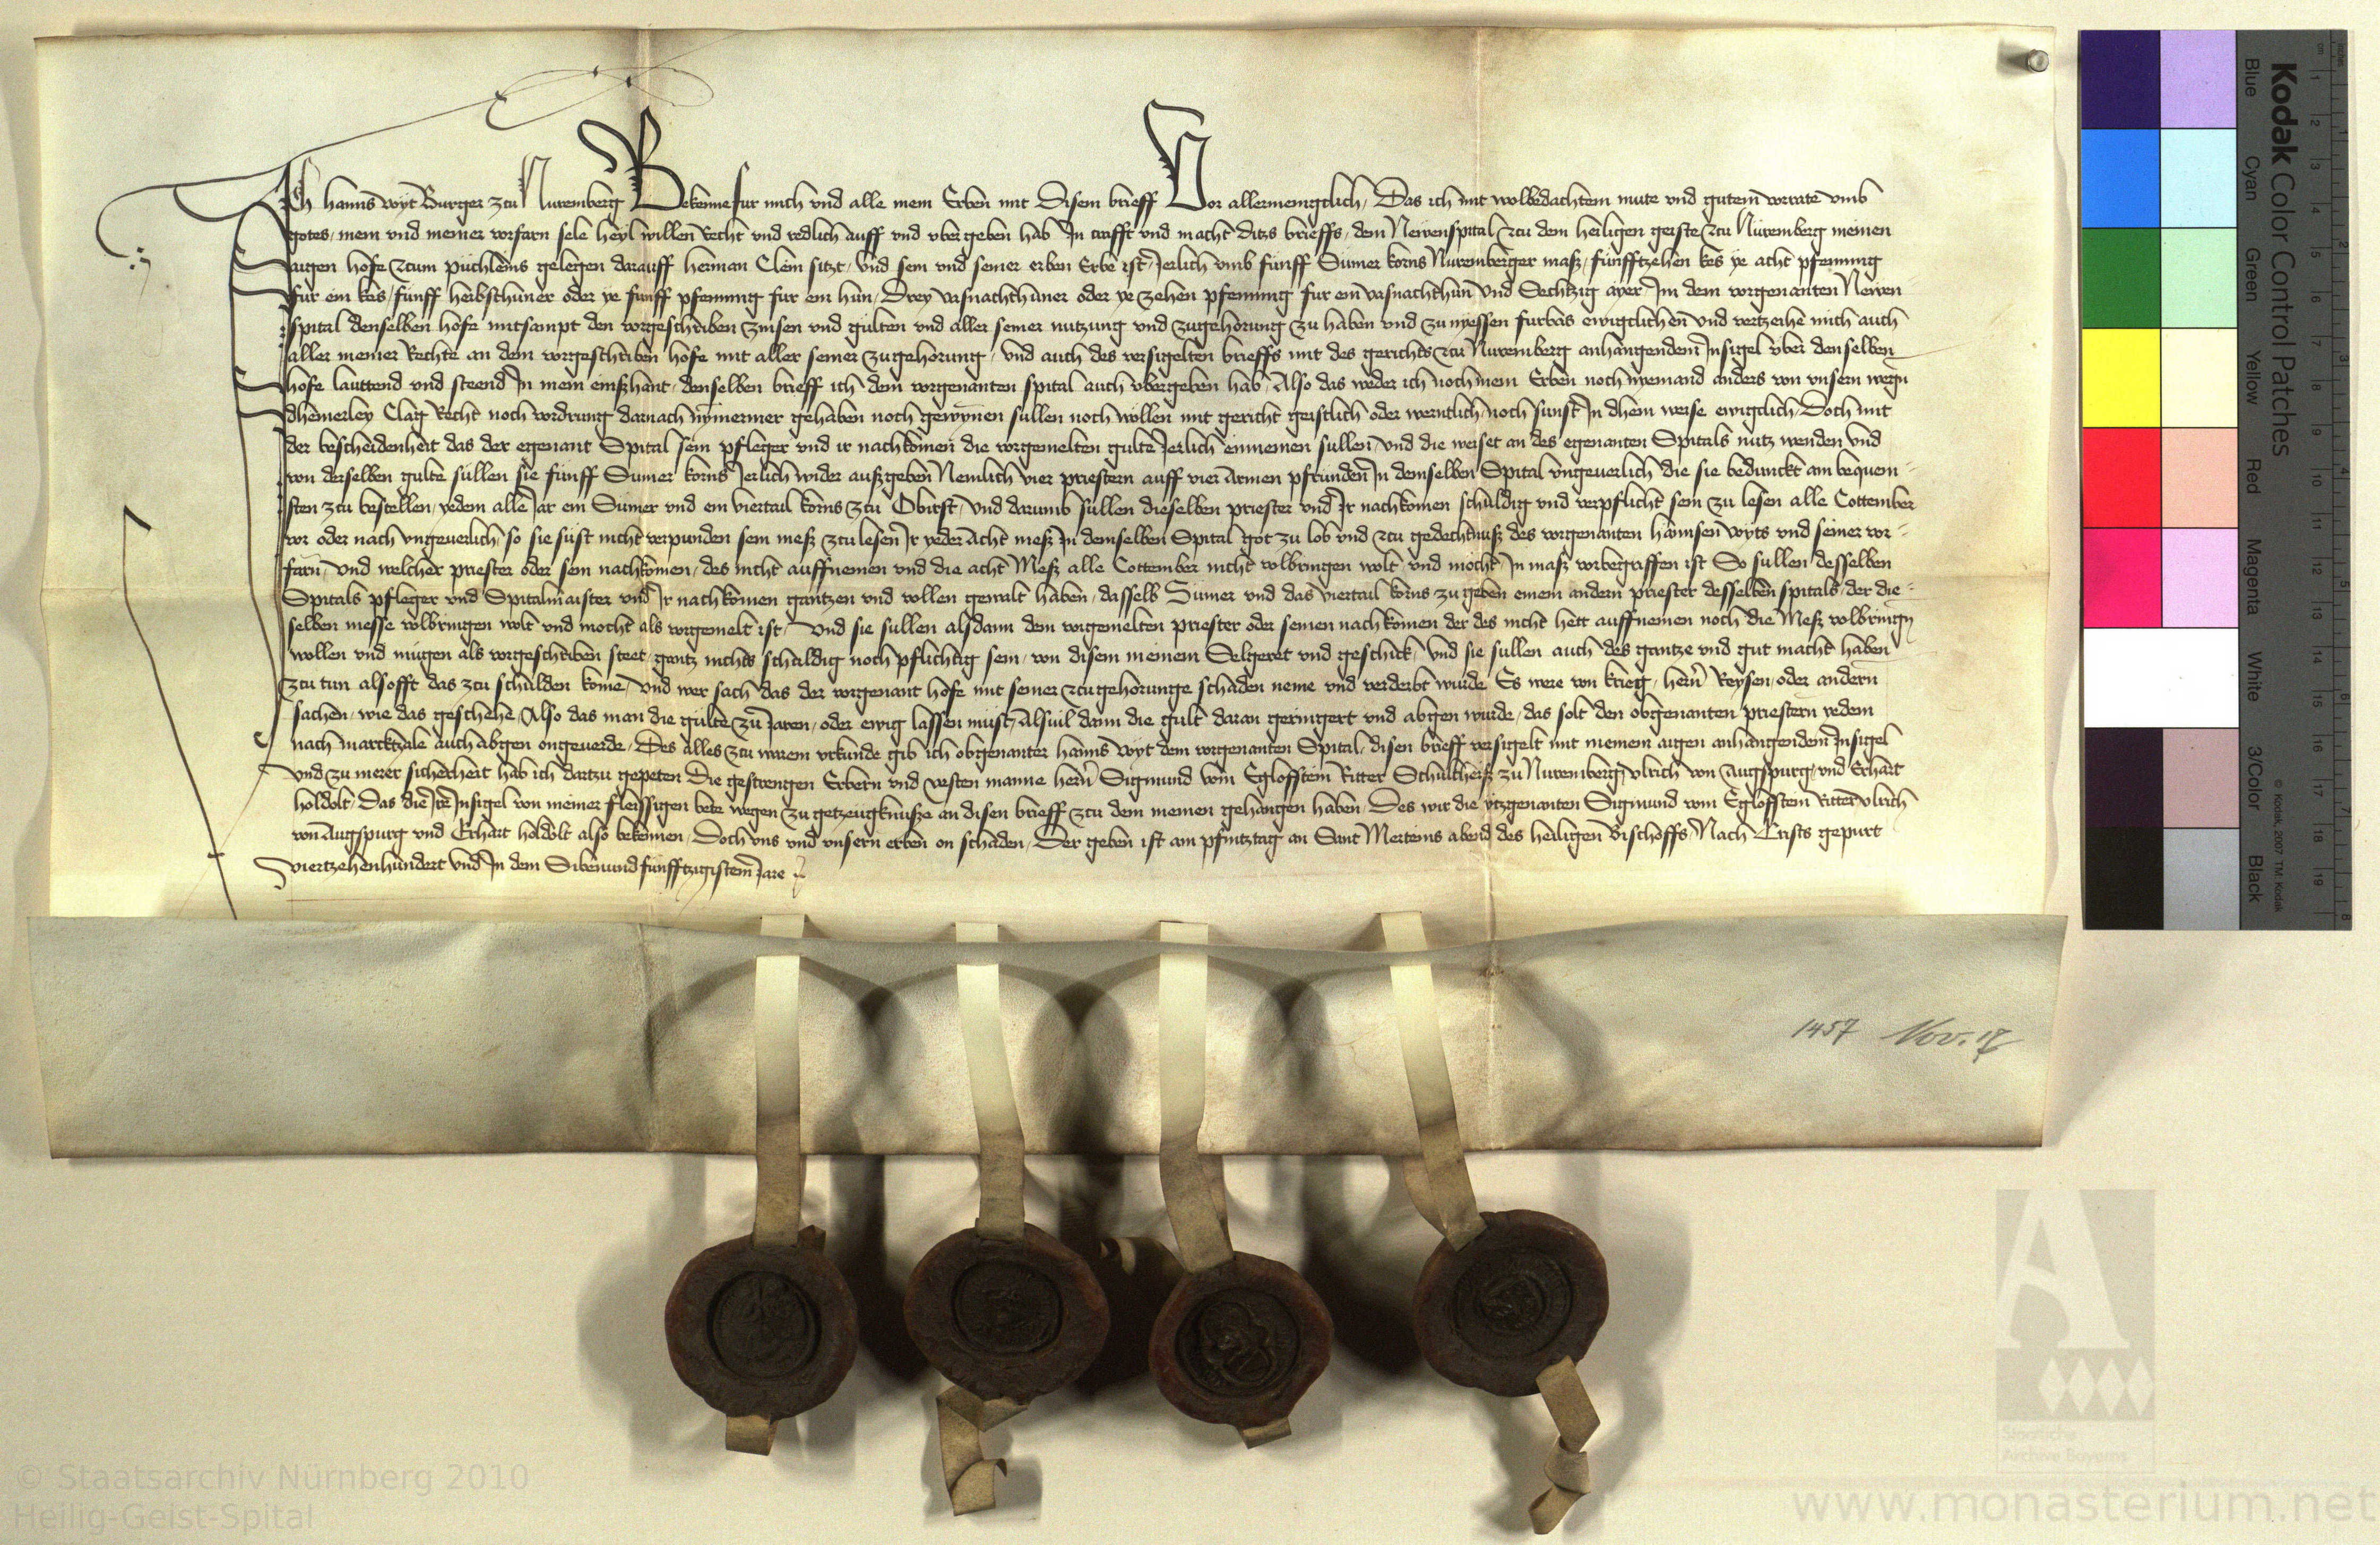 Ich hanns voyt Burger zcu Nuremberg Bekenne fur mich vnd alle mein Erben mit disem brieff Vor allermeniglich / Das ich mit wolbedachtem mute vnd gutem vorrate vmb
gotes / mein vnd meiner vorfarn sele heyl willen Recht vnd redlich auff vnd vbergeben hab In crafft vnd macht ditzs brieffs / dem Newenspital zcu dem heiligen geiste zcu Nuremberg meinen
aigen hofe zcum puchlems gelegen darauff herman Clem sitzt / vnd sein vnd seiner erben Erbe ist / Jerlich vmb funff Sumer korns Nuremberger masz / funfftzehen kes ye acht pfenning
fur ein kes / funff herbsthuner oder ye funff pfenning fur ein hun / Drey vasnachthuner oder ye zehen pfenning fur ein vasnachthun vnd Sechtzig ayer / Im dem vorgenanten Newen
spital denselben hofe mitsampt den vorgeschriben zinsen vnd gulten vnd aller seiner nutzung vnd zugehorung zu haben vnd zu nyessen furbas ewigclichen vnd vertzeihe mich auch
aller meiner Rechte an dem vorgeschriben hofe mit aller seiner zugehorung / vnd auch des versigelten brieffs mit des gerichts zcu Nuremberg anhangendem Insigel vber denselben
hofe lauttend vnd steend In mein einszhant / denselben brieff ich dem vorgenanten spital auch vbergeben hab / Also das weder ich noch mein Erben noch nyemand anders von vnsern wegn
dheinerley Clag Recht noch vordrung darnach nymermer gehaben noch gewynen sullen noch wollen mit gericht geistlich oder werntlich noch sunst In dhein weise ewigclich / Doch mit
der bescheidenheit das der egenant Spital sein pfleger vnd ir nachkomen die vorgemelten gulte Jerlich einnemen sullen / vnd die weiset an des egenanten Spitals nutz wenden vnd
von derselben gulte sullen sie funff Sumer korns Jerlich wider auszgeben Nemlich vier priestern auff vier armen pfrunden In demselben Spital vngeuerlich die sie bedunckt am bequem-
sten zcu bestellen / yedem alle Jar ein Sumer vnd ein viertail korns zcu Obirst / vnd darumb sullen dieselben priester vnd Ir nachkomen schuldig vnd verpflicht sein zu lesen alle Cottember
vor oder nach vngeuerlich / so sie sust nicht verpunden sein mesz zcu lesen Ir yeder acht mesz In demselben Spital got zu lob vnd zcu gedechtnusz des vorgenanten hannsen voyts vnd seiner vor-
farn / vnd welcher priester oder sein nachkomen / des nicht auffnemen vnd die acht Mesz alle Cottember nicht volbringen wolt vnd mocht / In masz vorbegriffen ist So sullen desselben
Spitals pfleger vnd Spitalmaister vnd Ir nachkomen gantzen vnd vollen gewalt haben / dasselb Sumer vnd das viertail korns zu geben einem andern priester desselben spitals / der die-
selben messe volbringen wolt vnd mocht als vorgemelt ist / vnd sie sullen alsdann dem vorgemelten priester oder seinen nachkomen der des nicht hett auffnemen noch die Mesz volbringn
wollen vnd mugen als vorgeschriben steet / gantz nichts schuldig noch pflichtig sein / von disem meinem Selgeret vnd geschick / vnd sie sullen auch des gantze vnd gut macht haben
zcu tun alsofft das zcu schulden kome / vnd wer sach das der vorgenant hofe mit seiner zcugehorunge schaden neme vnd verderbt wurde Es were von krieg / hern Reysen / oder andern
sachen / wie das geschehe / Also das man die gulte zu Jaren / oder ewig lassen must / Alsuil dann die gult daran geringert vnd abgen wurde / das solt den obgenanten priestern yedem
nach marcktzale auch abgen ongeuerde / Des alles zcu warem vrkunde gib ich obgenanter hanns voyt dem vorgenanten Spital / disen brieff versigelt mit meinem aigen anhangendem Insigel
vnd zu merer sicherheit hab ich dartzu gepeten Die gestrengen Erbern vnd vesten manne hern Sigmund vom Egloffstein Ritter Schultheisz zu Nuremberg / vlrich von Augspurg / vnd Erhart
holdolt / Das die Ire Insigel von meiner fleissigen bete wegen zu getzeugknusze an disen brieff zcu dem meinen gehangen haben / Des wir die ytzgenanten Sigmund vom Egloffstein Ritter vlrich
von Augspurg vnd Erhart holdolt also bekennen / Doch vns vnd vnsern erben on schaden / Der geben ist am pfintztag an Sant Mertens abend des heiligen Bischoffs / Nach Crists gepurt
viertzehenhundert vnd In dem Sibenundfunfftzigistem Jare
1457 Nov. 17
Kodak Color Control Patches
Blue Cyan Green Yellow Red Magenta White 3/Color Black
© Kodak, 2007 TM: Kodak
© Staatsarchiv Nürnberg 2010
Heilig-Geist-Spital
Staatliche
Archive Bayerns
www.monasterium.net